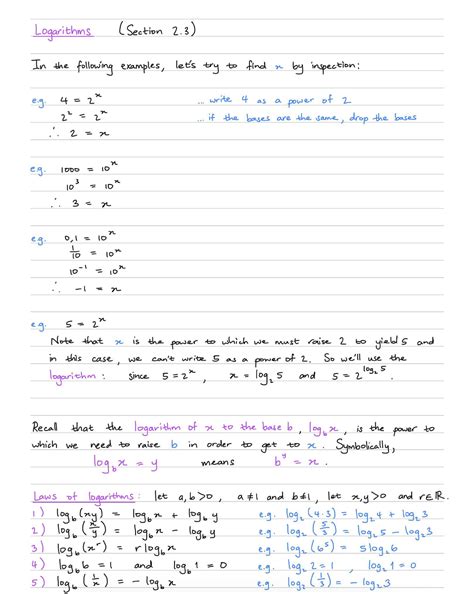 Logarithms (Section 2.3)
In the following examples, let's try to find x by inspection:
e.g. 4 = 2^x ... write 4 as a power of 2
2^2 = 2^x ... if the bases are the same, drop the bases
∴ 2 = x
e.g. 1000 = 10^x
10^3 = 10^x
∴ 3 = x
e.g. 0,1 = 10^x
1/10 = 10^x
10^-1 = 10^x
∴ -1 = x
e.g. 5 = 2^x
Note that x is the power to which we must raise 2 to yield 5 and
in this case, we can't write 5 as a power of 2. So we'll use the
logarithm: since 5 = 2^x, x = log₂ 5 and 5 = 2^(log₂ 5).
Recall that the logarithm of x to the base b, log_b x, is the power to
which we need to raise b in order to get to x. Symbolically,
log_b x = y means b^y = x.
Laws of logarithms: let a,b>0, a≠1 and b≠1, let x,y>0 and r∈ℝ.
1) log_b (xy) = log_b x + log_b y e.g. log₂ (4·3) = log₂ 4 + log₂ 3
2) log_b (x/y) = log_b x - log_b y e.g. log₂ (5/3) = log₂ 5 - log₂ 3
3) log_b (x^r) = r log_b x e.g. log₂ (6^5) = 5 log₂ 6
4) log_b b = 1 and log_b 1 = 0 e.g. log₂ 2 = 1, log₂ 1 = 0
5) log_b (1/x) = - log_b x e.g. log₂ (1/3) = - log₂ 3